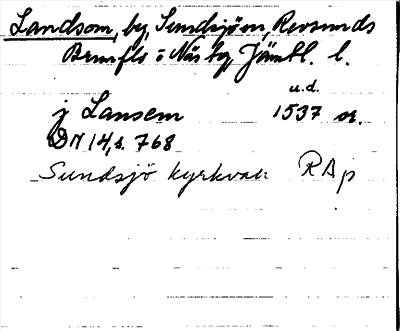 Landsom, by, Sundsjö sn, Revsunds
Brunflo o Näs tg Jämtl. l.
u.d.
j Lansem 1537 or.
DN 14, s. 768
Sundsjö kyrkvak RAp